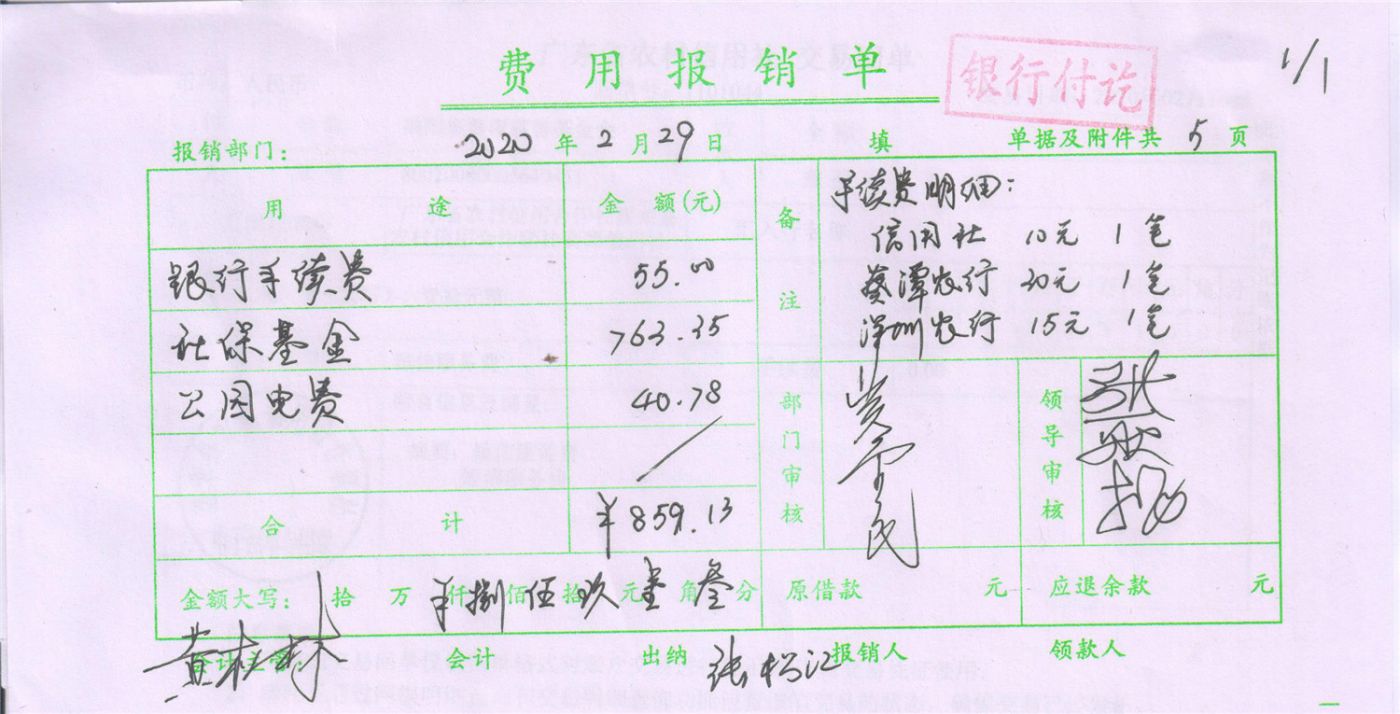 费用报销单
银行付讫
1/1
报销部门： 2020年2月29日 填 单据及附件共5页
用途 金额(元) 备注
手续费明细：
信用社 10元 1笔
葵潭农行 30元 1笔
洋圳农行 15元 1笔
银行手续费 55.00
社保基金 763.35
公园电费 40.78
合计 ¥859.13
部门审核
领导审核
金额大写： 拾 万 仟捌佰伍拾玖元壹角叁分 原借款 元 应退余款 元
会计主管： 会计 出纳 张松江 报销人 领款人